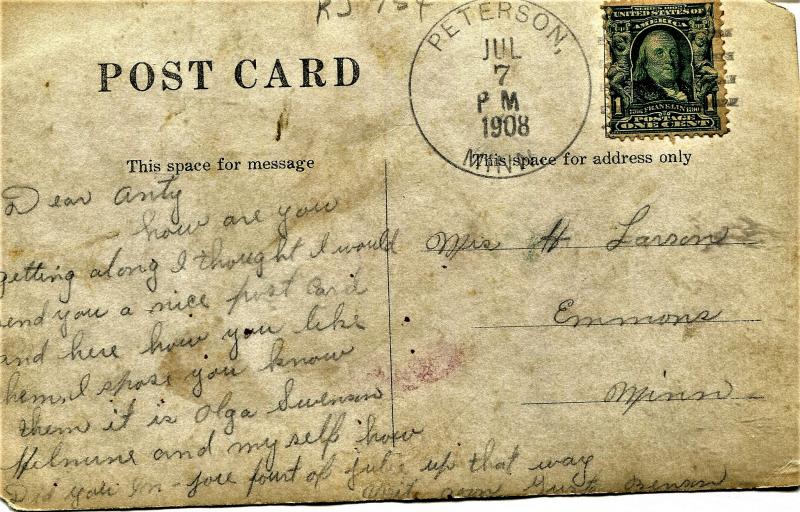 RJ
POST CARD
PETERSON,
JUL
7
P M
1908
MINN
SERIES 1902
UNITED STATES OF
AMERICA
1 FRANKLIN 1
POSTAGE
ONE CENT
This space for message
This space for address only
Dear Anty
how are you
getting along I thought I would
send you a nice post card
and here how you like
hem I spose you know
them it is Olga Swenson
and my self how
Did you In-joue fourt of julie up that way
Writ soon Benson
Mis H Larson
Emmons
Minn